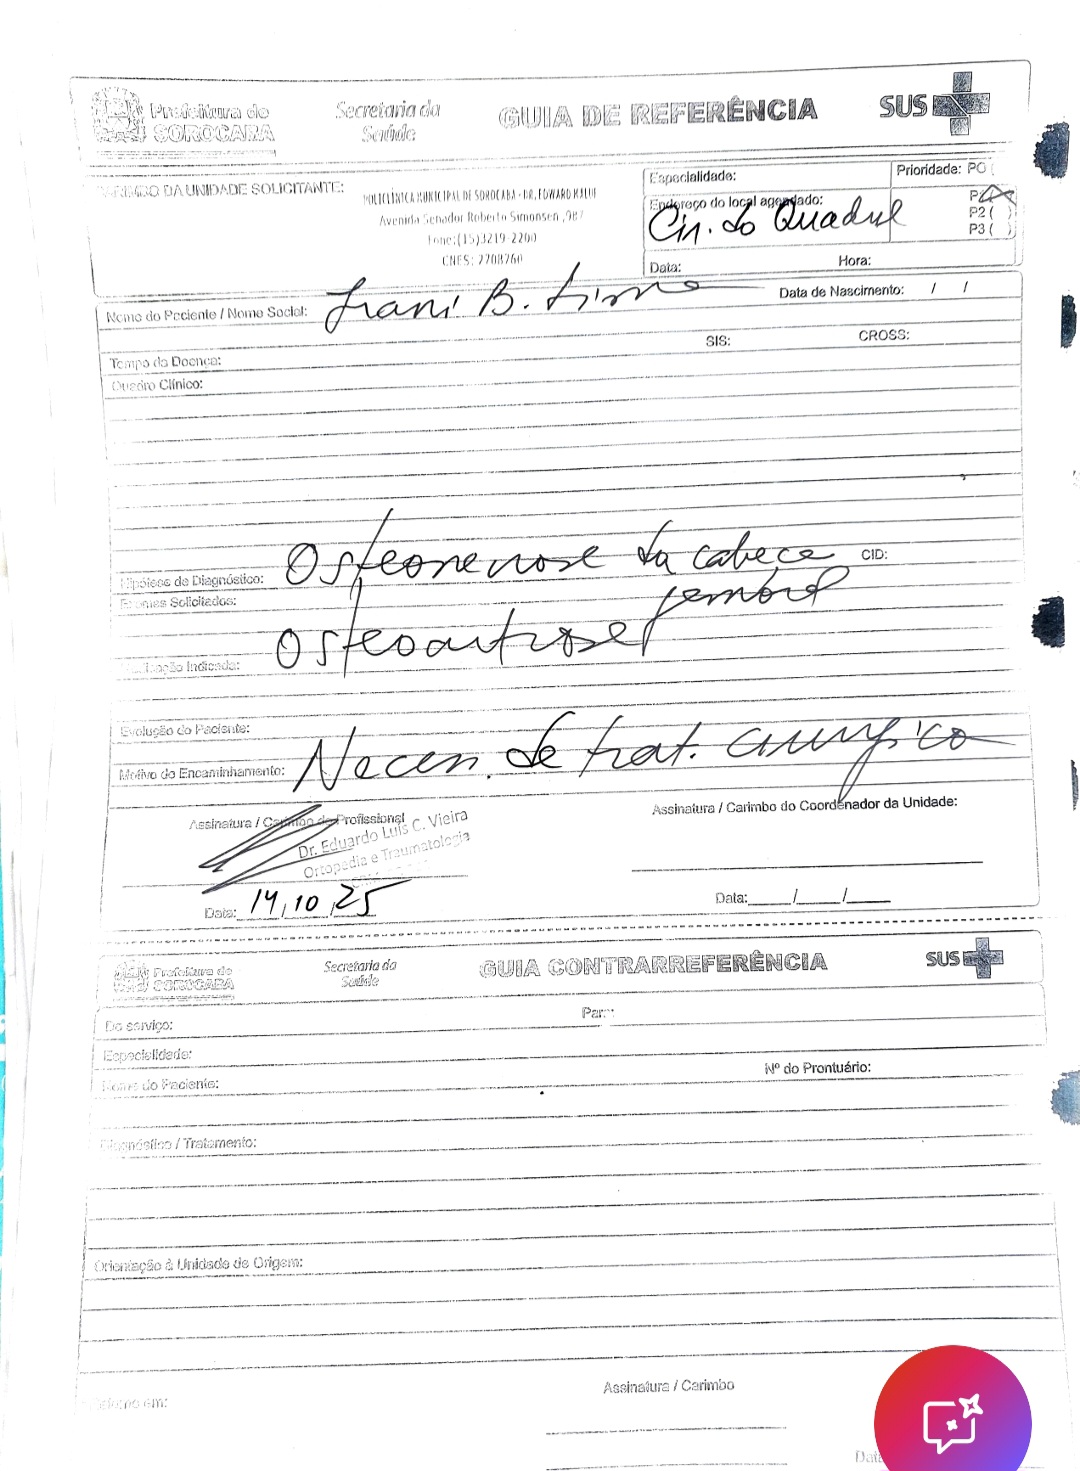 Prefeitura de
SOROCABA
Secretaria da
Saúde
GUIA DE REFERÊNCIA
SUS
CARIMBO DA UNIDADE SOLICITANTE:
POLICLÍNICA MUNICIPAL DE SOROCABA - DR. EDWARD MALUF
Avenida Senador Roberto Simonsen ,987
Fone:(15)3219-2200
CNES: 2708760
Especialidade:
Prioridade: P0 (
P1
P2 ( )
P3 ( )
Endereço do local agendado:
Cir. do Quadril
Data:
Hora:
Nome do Paciente / Nome Social: Irani B.
Data de Nascimento: / /
SIS:
CROSS:
Tempo da Doença:
Quadro Clínico:
Hipótese de Diagnóstico: Osteonecrose da cabeça
CID:
femoral
Exames Solicitados:
Osteoartrose
Indicada:
Evolução do Paciente:
Motivo do Encaminhamento: Necess. de trat. cirurgico
Assinatura / Carimbo do Profissional
Assinatura / Carimbo do Coordenador da Unidade:
Dr. Eduardo Luis C. Vieira
Ortopedia e Traumatologia
Data: 14,10,25
Data:____/____/____
Prefeitura de
SOROCABA
Secretaria da
Saúde
GUIA CONTRARREFERÊNCIA
SUS
Do serviço:
Para:
Especialidade:
Nome do Paciente:
Nº do Prontuário:
Diagnóstico / Tratamento:
Orientação à Unidade de Origem:
Retorno em:
Assinatura / Carimbo
Data